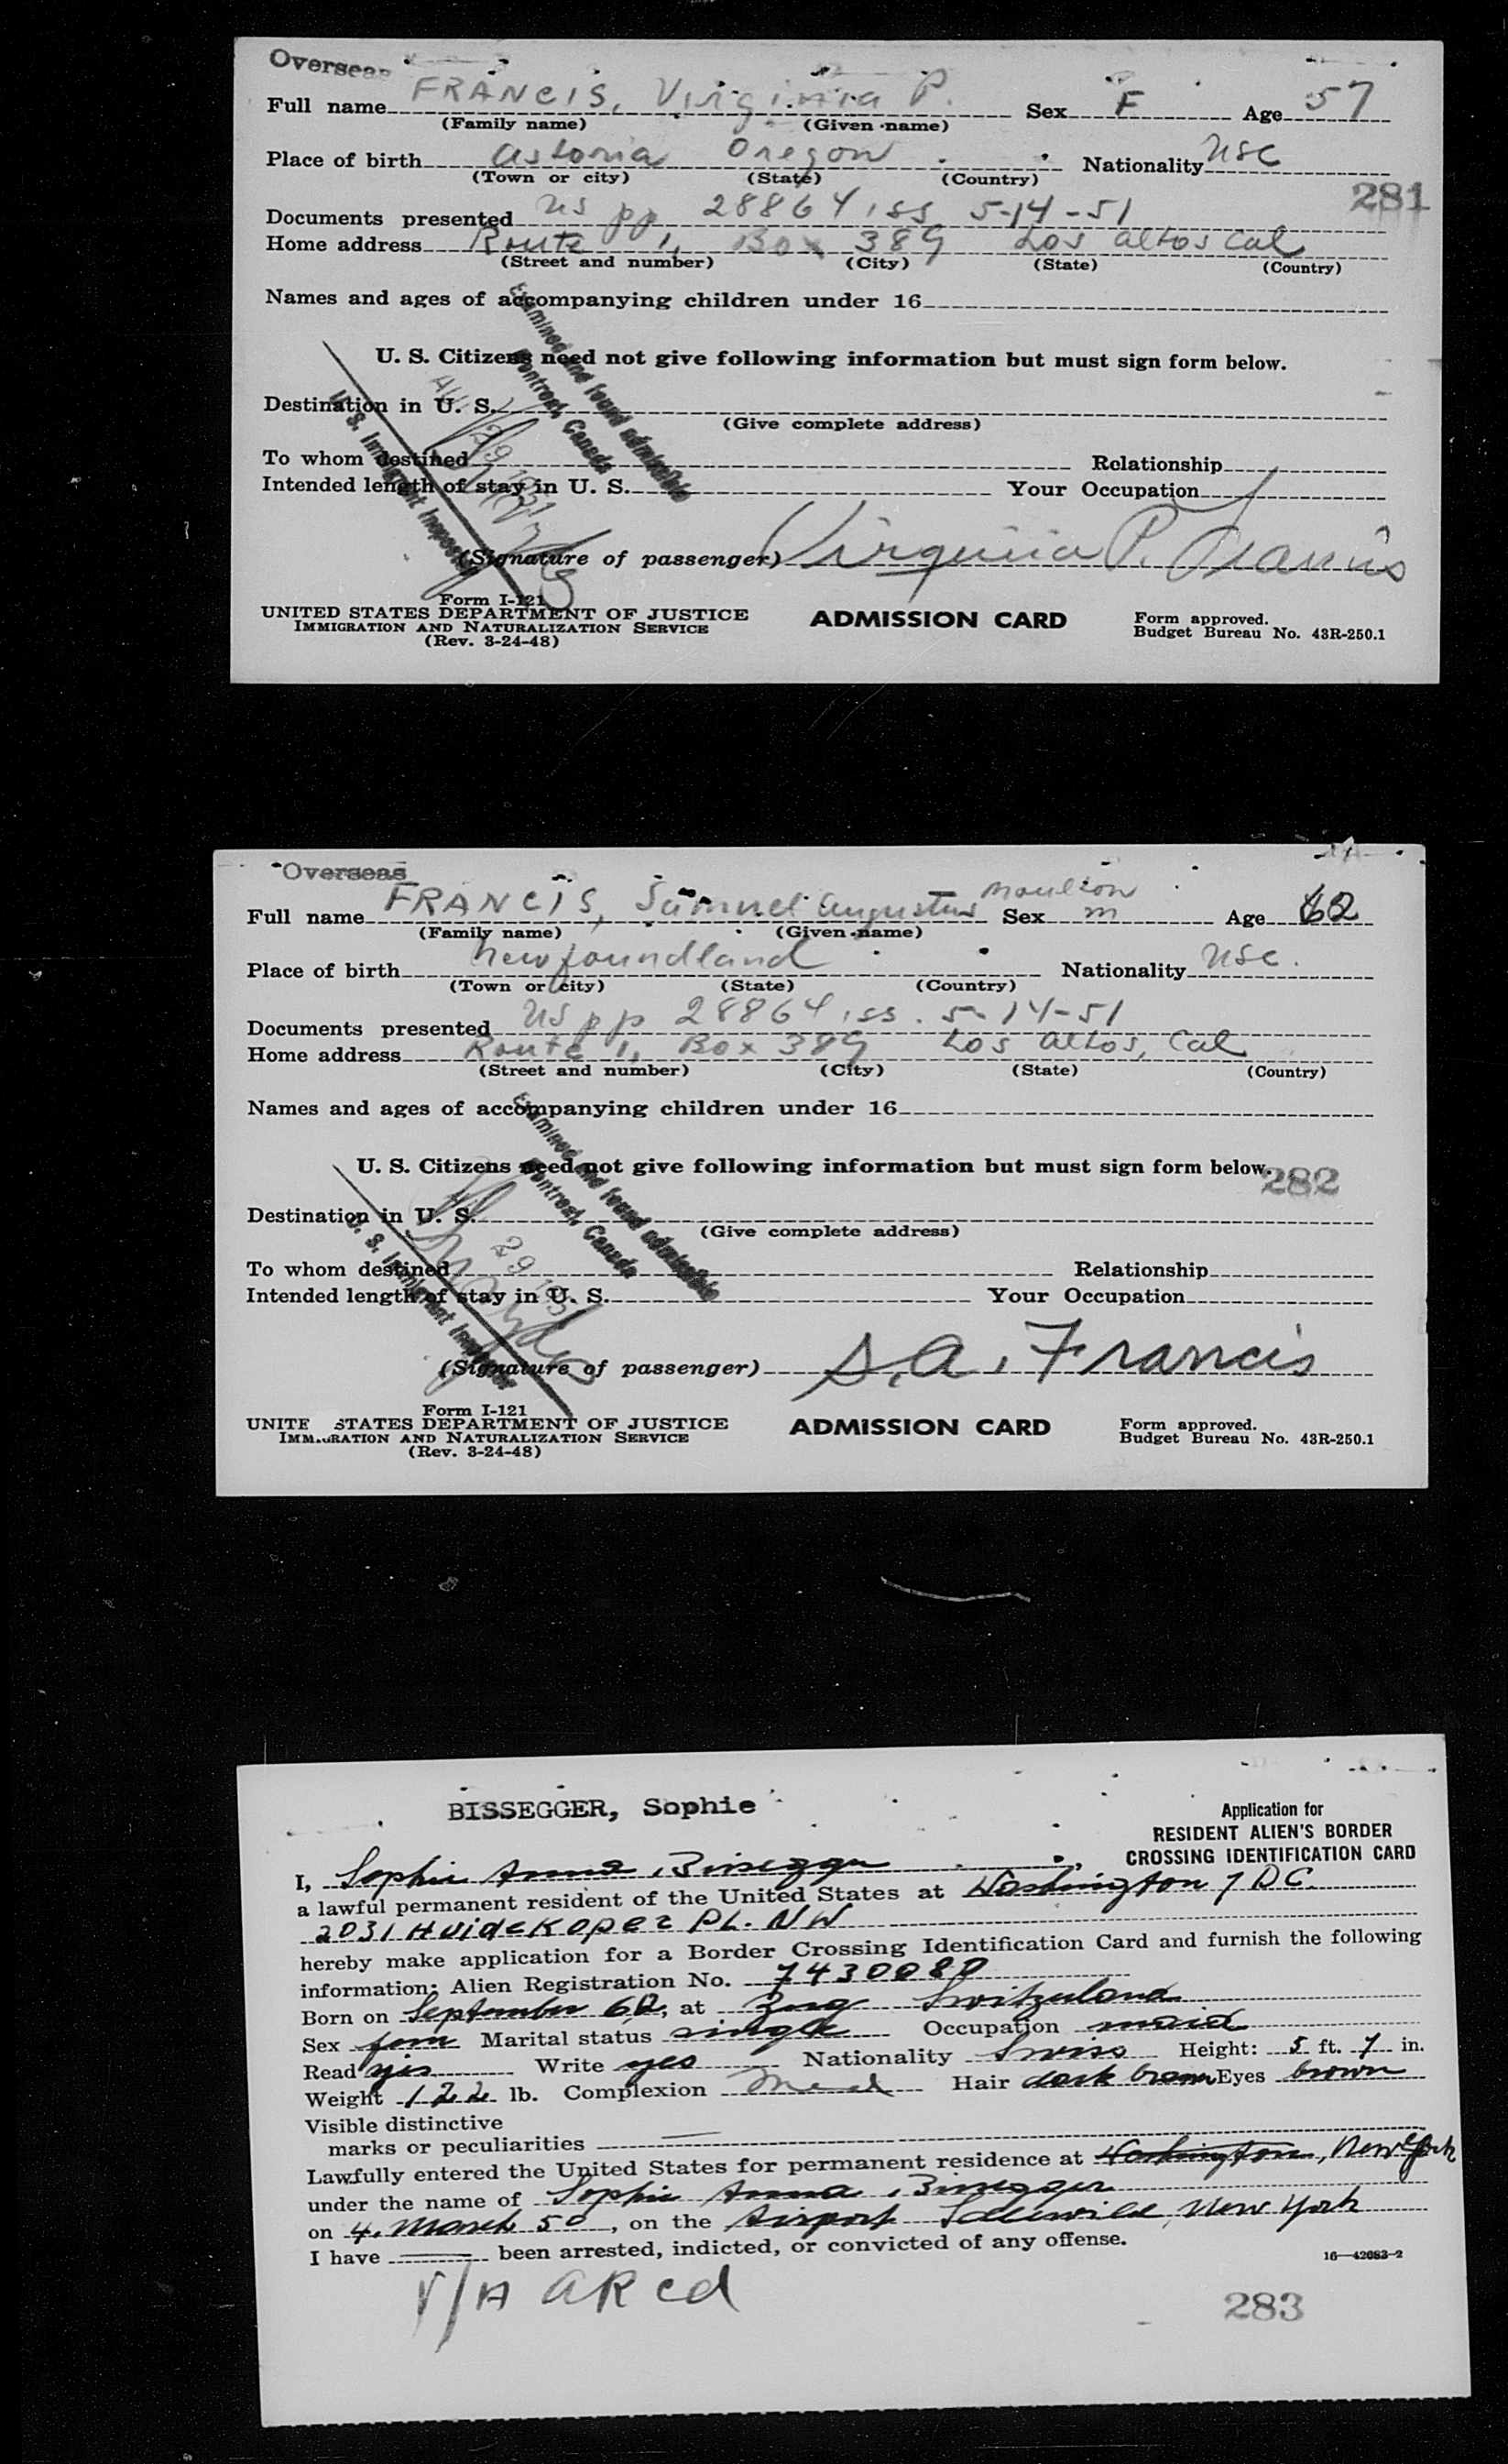 Overseas
Full name FRANCIS, Virginia P. Sex F Age 57
(Family name) (Given name)
Place of birth Astoria Oregon Nationality USC
(Town or city) (State) (Country)
281
Documents presented US pp 28864 iss 5-14-51
Home address Route 1, Box 389 Los Altos Cal
(Street and number) (City) (State) (Country)
Names and ages of accompanying children under 16
U. S. Citizens need not give following information but must sign form below.
Destination in U. S.
(Give complete address)
To whom destined Relationship
Intended length of stay in U. S. Your Occupation
Examined and found admissible
Montreal, Canada
29 1951
U. S. Immigrant Inspector
(Signature of passenger) Virginia P. Francis
Form I-121
UNITED STATES DEPARTMENT OF JUSTICE
IMMIGRATION AND NATURALIZATION SERVICE
(Rev. 3-24-48)
ADMISSION CARD
Form approved.
Budget Bureau No. 43R-250.1
Overseas
Full name FRANCIS, Samuel Augustus Moulton Sex m Age 62
(Family name) (Given name)
Place of birth Newfoundland Nationality USC.
(Town or city) (State) (Country)
Documents presented US pp 28864 iss. 5-14-51
Home address Route 1, Box 389 Los Altos, Cal
(Street and number) (City) (State) (Country)
Names and ages of accompanying children under 16
U. S. Citizens need not give following information but must sign form below.
282
Destination in U. S.
(Give complete address)
To whom destined Relationship
Intended length of stay in U. S. Your Occupation
Examined and found admissible
Montreal, Canada
29 1951
U. S. Immigrant Inspector
(Signature of passenger) S. A. Francis
Form I-121
UNITE STATES DEPARTMENT OF JUSTICE
IMMIGRATION AND NATURALIZATION SERVICE
(Rev. 3-24-48)
ADMISSION CARD
Form approved.
Budget Bureau No. 43R-250.1
BISSEGGER, Sophie
Application for
RESIDENT ALIEN'S BORDER
CROSSING IDENTIFICATION CARD
I, Sophie Anna Bissegger
a lawful permanent resident of the United States at Washington 7 DC.
2031 Huidekoper PL. NW
hereby make application for a Border Crossing Identification Card and furnish the following
information: Alien Registration No. 7430080
Born on September 6, at Zug Switzerland
Sex fem Marital status single Occupation maid
Read yes Write yes Nationality Swiss Height: 5 ft. 7 in.
Weight 122 lb. Complexion Med Hair dark brown Eyes brown
Visible distinctive
marks or peculiarities
Lawfully entered the United States for permanent residence at Washington, New York
under the name of Sophie Anna Bissegger
on 4. March 50, on the Airport Idlewild, New York
I have been arrested, indicted, or convicted of any offense.
16—42083-2
V/A AR cd
283